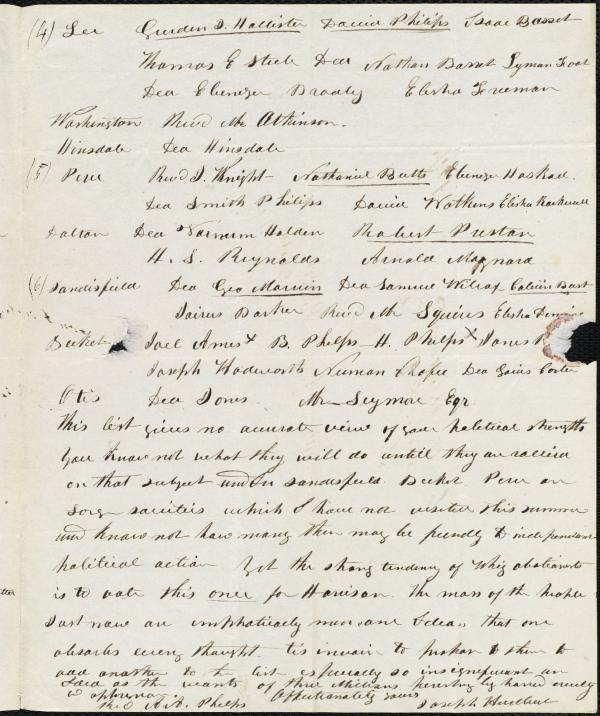 (4) Lee Gurdon D. Hollister David Philips Isaac Basset
Thomas E Steele Dea Nathan Basset Lyman Foot
Dea Ebenezer Brady Elisha Freeman
Washington Revd Mr Atkinson.
Hinsdale Dea Hinsdale
(5) Peru Revd J. Knight Nathaniel Butts Ebenezer Haskall.
Dea Smith Philips David Watkins Elisha Rockwell
Dalton Dea Varnum Holden Robert Preston
H. S. Reynolds Arnold Maynard
(6) Sandisfield Dea Geo Marvin Dea Samuel Wilcox Calvin Burt
Darius Barker Revd Mr Squires Elisha
Becket Joel Ames x B. Phelps H. Phelps x James
Joseph Wadsworth Dea Gaius Carter
Otis Dea Jones Mr Seymor Eqr
This list gives no accurate view of your political strength
You know not what they will do untill they are rallied
on that subject and in Sandisfield Becket Peru are
large societies which I have not visited this summer
and know not how many there may be friendly to independant
political action Yet the strong tendency of Whig abolitionists
is to vote this once for Harrison. The mass of the people
Just now are imphatically men one Idea,, that one
absorbs every thought. tis in vain to them to
add another to the list especially so insignificant an
Idea as the wants of three Millions perishing by hard cruelty
& oppression. Affectionately yours
Revd A. A. Phelps Joseph Hurlbut